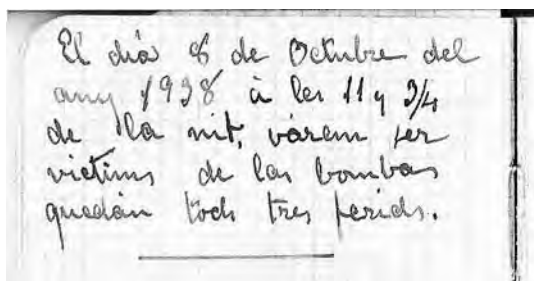 El dia 8 de Octubre del
any 1938 à les 11 y 3/4
de la nit, várem ser
victims de las bombas
quedán tods tres ferids.